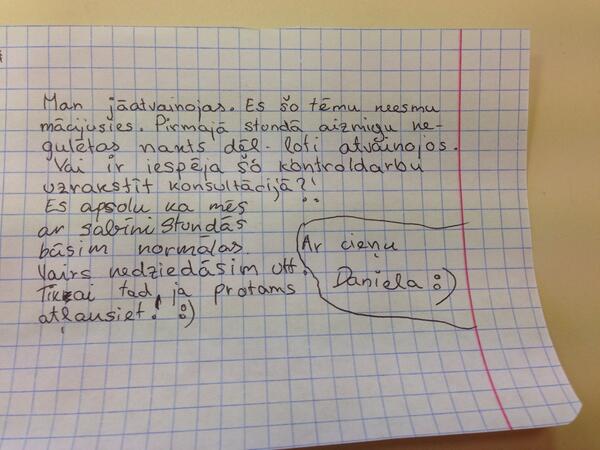 Man jāatvainojas. Es šo tēmu neesmu
mācījusies. Pirmajā stundā aizmigu ne-
gulētas nakts dēļ. Ļoti atvainojos.
Vai ir iespēja šo kontroldarbu
uzrakstīt konsultācijā?!
Es apsolu ka mēs
ar sabīni stundās
būsim normālas.
Vairs nedziedāsim utt.
Tikai tad, ja protams
atļausiet! :)
Ar cieņu
Daniela :)